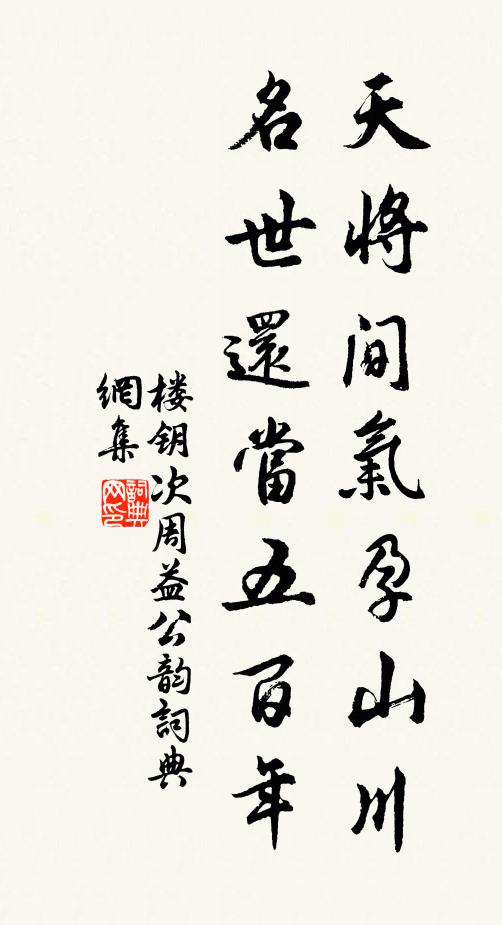 天將間氣孕山川
名世還當五百年
楼钥次周益公韵詞典
網集
詞典网印